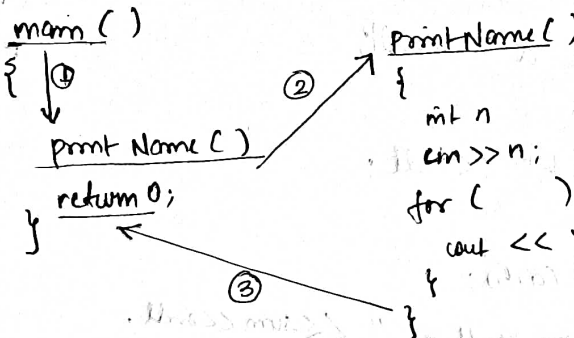 main ( )
{ ①
print Name ( )
return 0;
}
②
③
printName ( )
{
int n
cin >> n;
for ( )
cout << "
}
}